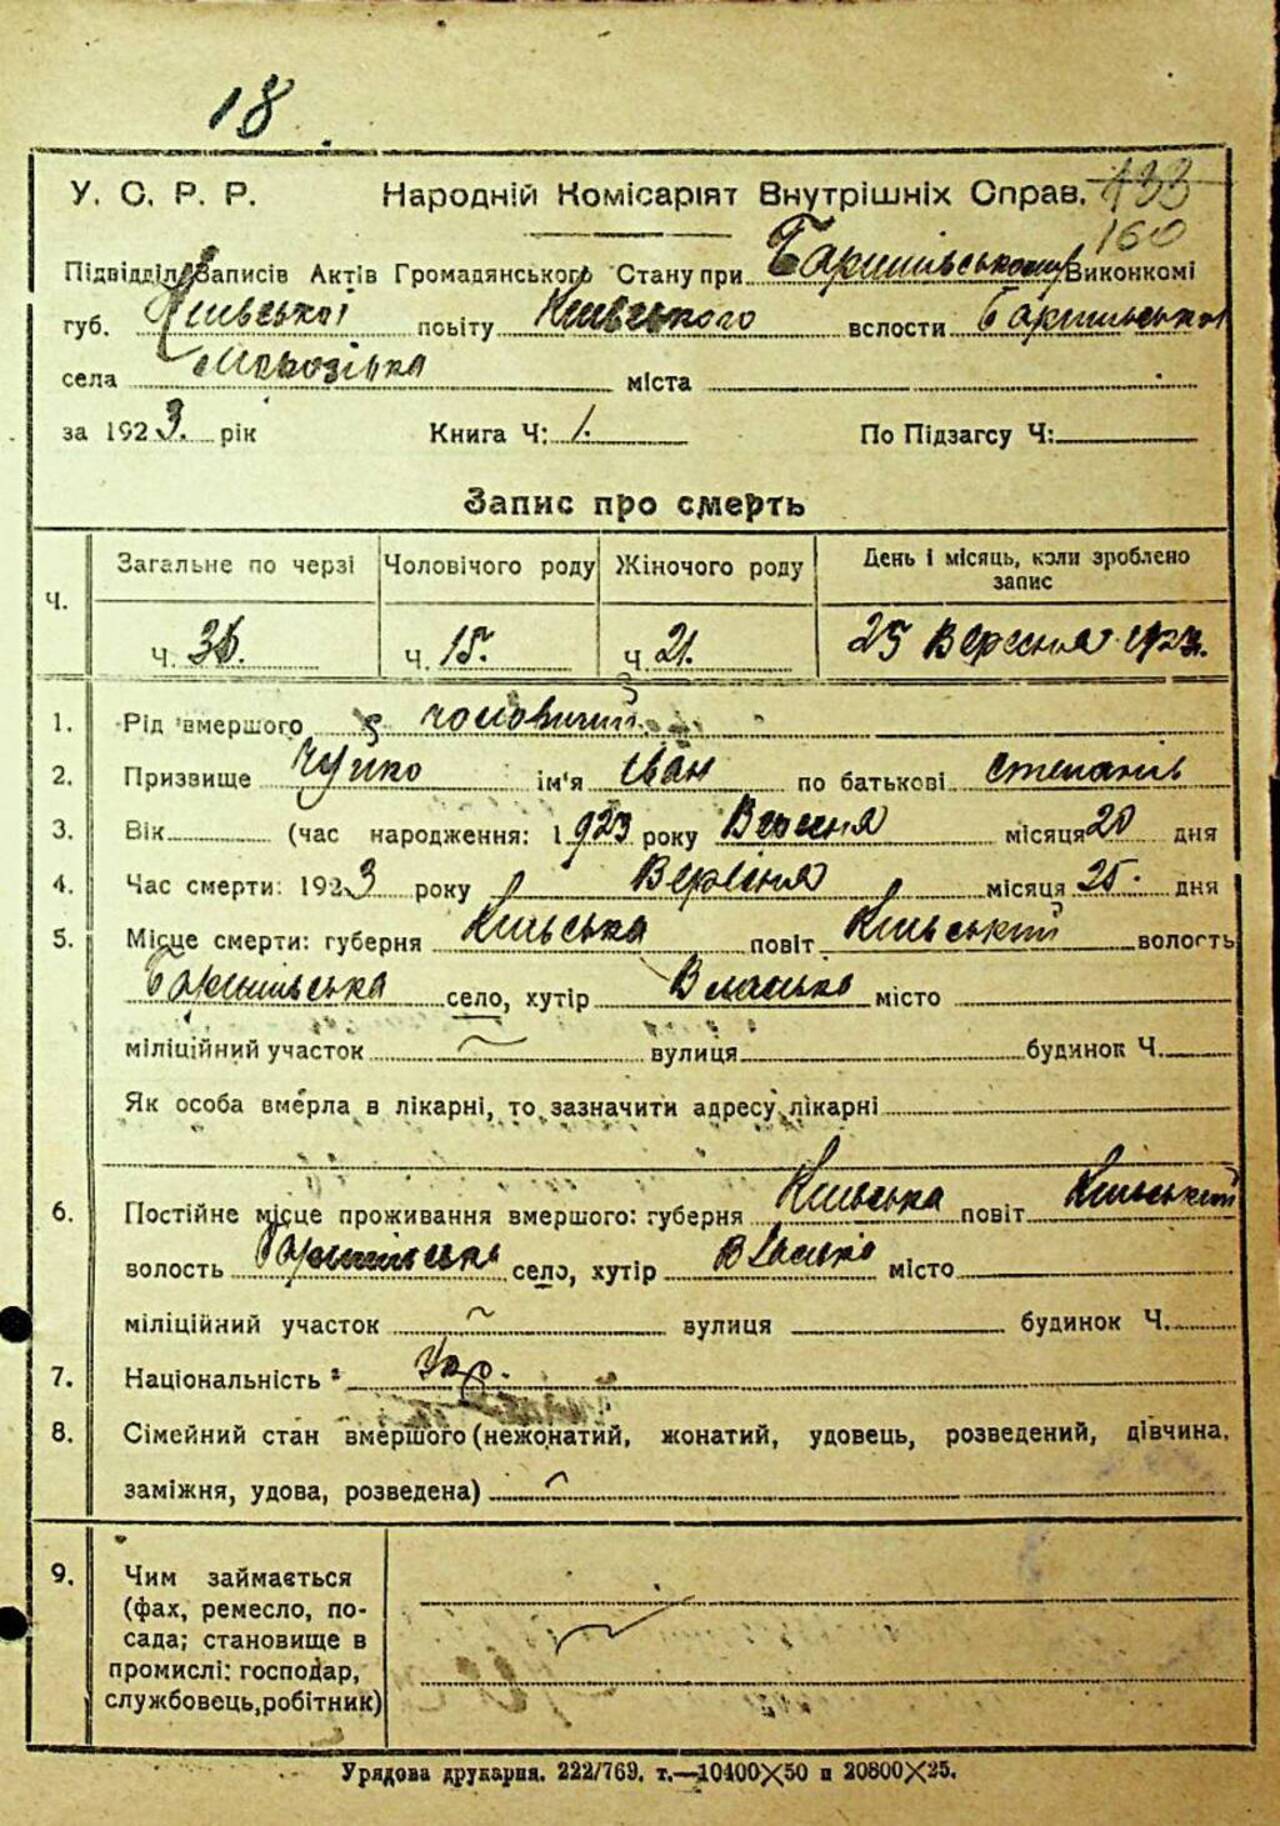 18
У. С. Р. Р. Народній Комісаріят Внутрішніх Справ. 133
160
Підвідділ Записів Актів Громадянського Стану при Баришівському Виконкомі
губ. Київської повіту Київського волости Баришівської
села Морозівка міста
за 1923. рік Книга Ч: 1. По Підзагсу Ч:
Запис про смерть
Загальне по черзі Чоловічого роду Жіночого роду День і місяць, коли зроблено
запис
Ч.
Ч. 36. Ч. 15. Ч. 21. 25 Вересня 1923.
1. Рід вмершого чоловичий
2. Призвище Чуйко ім'я Іван по батькові Степанів
3. Вік (час народження: 1923 року Вересня місяця 20 дня
4. Час смерти: 1923 року Вересня місяця 25. дня
5. Місце смерти: губерня Київська повіт Київський волость
Баришівська село, хутір місто
міліційний участок вулиця будинок Ч.
Як особа вмерла в лікарні, то зазначити адресу лікарні
6. Постійне місце проживання вмершого: губерня Київська повіт Київський
волость Баришівська село, хутір місто
міліційний участок вулиця будинок Ч.
7. Національність Укр.
8. Сімейний стан вмершого (нежонатий, жонатий, удовець, розведений, дівчина,
заміжня, удова, розведена)
9. Чим займається
(фах, ремесло, по-
сада; становище в
промислі: господар,
службовець, робітник)
Урядова друкарня. 222/769. т.—10400×50 и 20800×25.